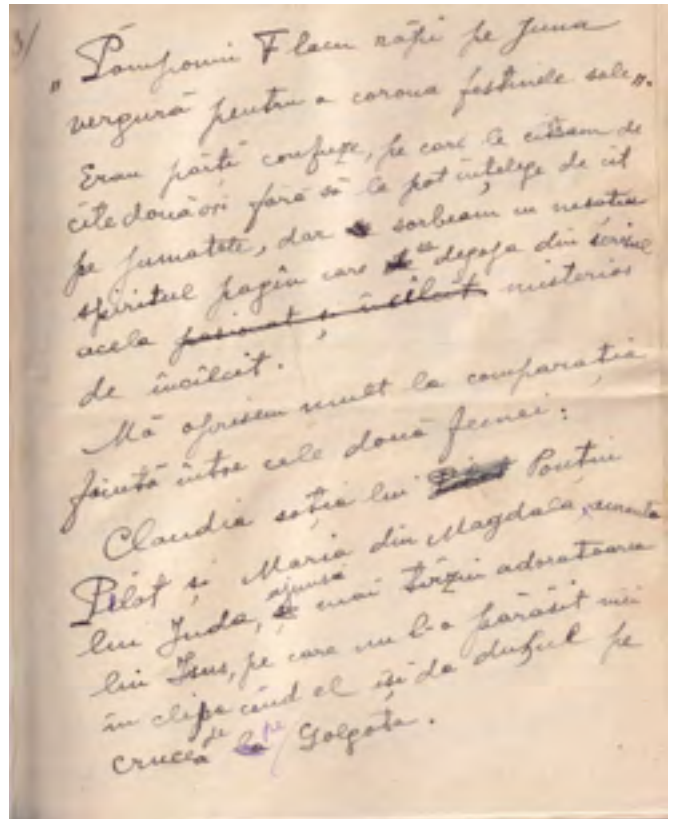 3/
„Pomponii Flacu răpi pe juna
vergură pentru a corona festinele sale„.
Erau părți confuze, pe care le citeam de
cîte două ori fără să le pot înțelege de cît
pe jumatate, dar sorbeam cu nesațiu
spiritul pagîn care se degaja din scrisul
acela pasionat și încîlcit misterios
de încîlcit.
Mă oprisem mult la comparația
făcută între cele două femei:
Claudia soția lui Pilat Ponțiu
Pilat și Maria din Magdala, amanta
lui Juda, ajunsă mai tîrziu adoratoarea
lui Isus, pe care nu l-a părăsit nici
în clipa cînd el își da duhul pe
crucea de pe Golgota.